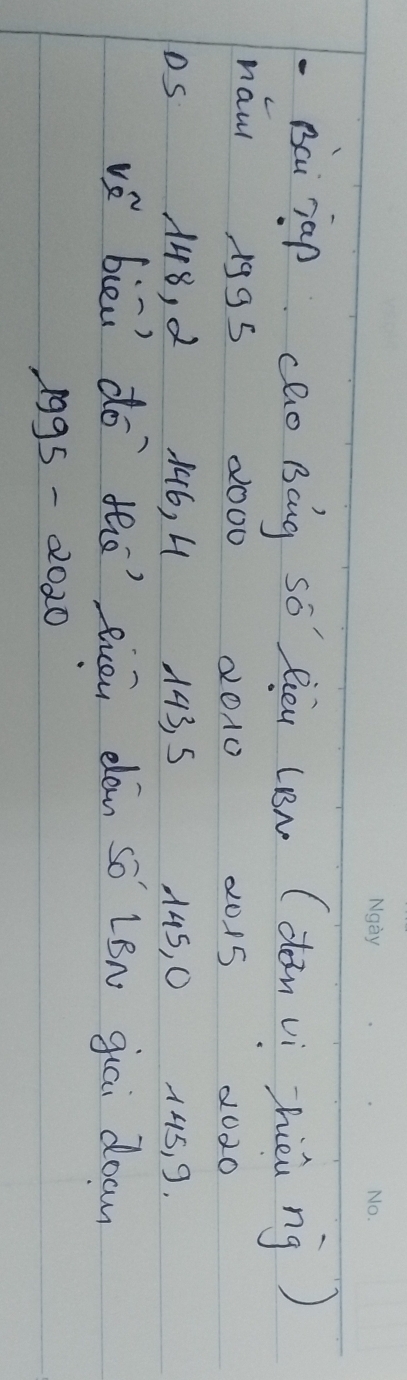 Ngày No.
• Bài Tập. cho Bảng số liệu LBN (đơn vị triệu ng)
năm 1995 2000 2010 2015 2020
DS 148,2 146,4 143,5 145,0 145,9.
vẽ biểu đồ thể hiện dân số LBN giai đoạn
1995 - 2020